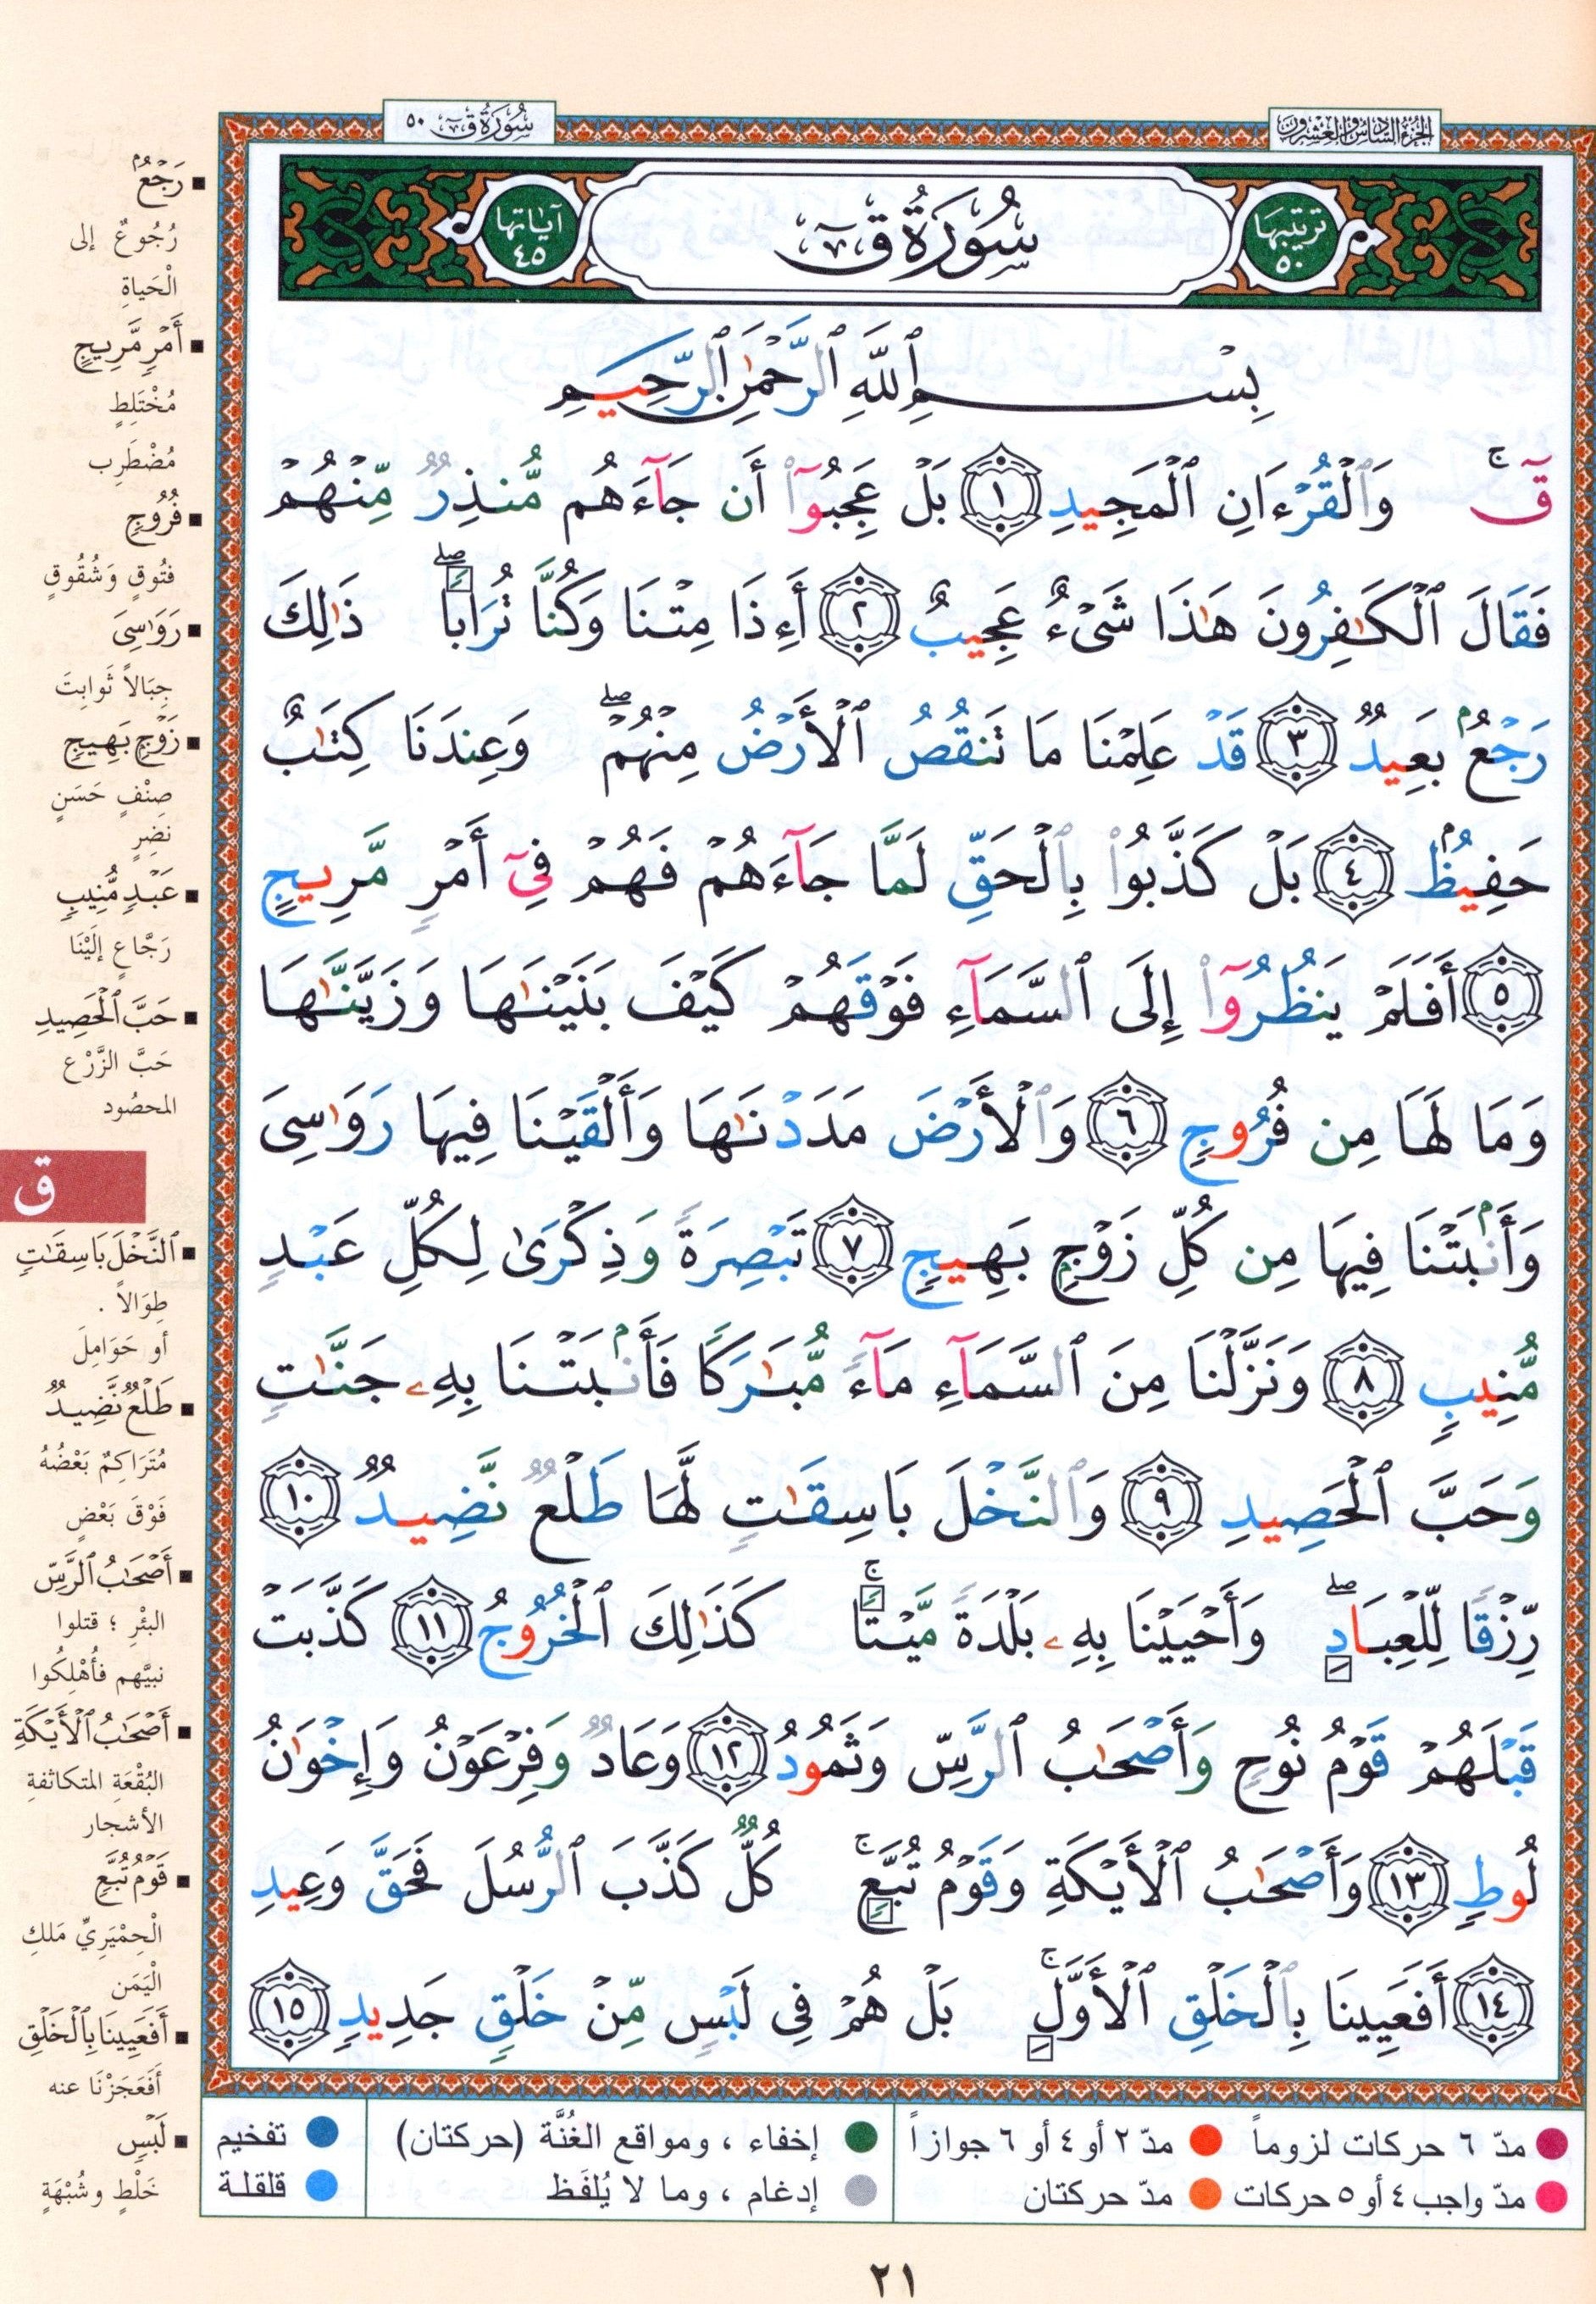 الجزء السادس والعشرون
سورة ق ٥٠
ترتيبها
٥٠
سُورَةُ قٓ
آياتها
٤٥
بِسْمِ ٱللَّهِ ٱلرَّحْمَٰنِ ٱلرَّحِيمِ
قٓ ۚ وَٱلْقُرْءَانِ ٱلْمَجِيدِ ﴿١﴾ بَلْ عَجِبُوٓا۟ أَن جَآءَهُم مُّنذِرٌ مِّنْهُمْ
فَقَالَ ٱلْكَٰفِرُونَ هَٰذَا شَىْءٌ عَجِيبٌ ﴿٢﴾ أَءِذَا مِتْنَا وَكُنَّا تُرَابًا ۖ ذَٰلِكَ
رَجْعٌۢ بَعِيدٌ ﴿٣﴾ قَدْ عَلِمْنَا مَا تَنقُصُ ٱلْأَرْضُ مِنْهُمْ ۖ وَعِندَنَا كِتَٰبٌ
حَفِيظٌۢ ﴿٤﴾ بَلْ كَذَّبُوا۟ بِٱلْحَقِّ لَمَّا جَآءَهُمْ فَهُمْ فِىٓ أَمْرٍ مَّرِيجٍ
﴿٥﴾ أَفَلَمْ يَنظُرُوٓا۟ إِلَى ٱلسَّمَآءِ فَوْقَهُمْ كَيْفَ بَنَيْنَٰهَا وَزَيَّنَّٰهَا
وَمَا لَهَا مِن فُرُوجٍ ﴿٦﴾ وَٱلْأَرْضَ مَدَدْنَٰهَا وَأَلْقَيْنَا فِيهَا رَوَٰسِىَ
وَأَنۢبَتْنَا فِيهَا مِن كُلِّ زَوْجٍۭ بَهِيجٍ ﴿٧﴾ تَبْصِرَةً وَذِكْرَىٰ لِكُلِّ عَبْدٍ
مُّنِيبٍ ﴿٨﴾ وَنَزَّلْنَا مِنَ ٱلسَّمَآءِ مَآءً مُّبَٰرَكًا فَأَنۢبَتْنَا بِهِۦ جَنَّٰتٍ
وَحَبَّ ٱلْحَصِيدِ ﴿٩﴾ وَٱلنَّخْلَ بَاسِقَٰتٍ لَّهَا طَلْعٌ نَّضِيدٌ ﴿١٠﴾
رِّزْقًا لِّلْعِبَادِ ۖ وَأَحْيَيْنَا بِهِۦ بَلْدَةً مَّيْتًا ۚ كَذَٰلِكَ ٱلْخُرُوجُ ﴿١١﴾ كَذَّبَتْ
قَبْلَهُمْ قَوْمُ نُوحٍ وَأَصْحَٰبُ ٱلرَّسِّ وَثَمُودُ ﴿١٢﴾ وَعَادٌ وَفِرْعَوْنُ وَإِخْوَٰنُ
لُوطٍ ﴿١٣﴾ وَأَصْحَٰبُ ٱلْأَيْكَةِ وَقَوْمُ تُبَّعٍ ۚ كُلٌّ كَذَّبَ ٱلرُّسُلَ فَحَقَّ وَعِيدِ
﴿١٤﴾ أَفَعَيِينَا بِٱلْخَلْقِ ٱلْأَوَّلِ ۚ بَلْ هُمْ فِى لَبْسٍ مِّنْ خَلْقٍ جَدِيدٍ ﴿١٥﴾
▪ رَجْعٌۢ
رُجُوعٌ إلى
الْحَياةِ
▪ أَمْرٍ مَّرِيجٍ
مُخْتَلِطٍ
مُضْطَرِب
▪ فُرُوجٍ
فتُوقٍ وَشُقُوقٍ
▪ رَوَٰسِىَ
جِبَالاً ثَوابِتَ
▪ زَوْجٍ بَهِيجٍ
صِنْفٍ حَسَنٍ
نضِرٍ
▪ عَبْدٍ مُّنِيبٍ
رَجَّاعٍ إلَيْنَا
▪ حَبَّ ٱلْحَصِيدِ
حَبَّ الزَّرْعِ
المحصُود
ق
▪ ٱلنَّخْلَ بَاسِقَٰتٍ
طِوَالاً .
أو حَوَامِلَ
▪ طَلْعٌ نَّضِيدٌ
مُتَرَاكِمٌ بَعْضُهُ
فَوْقَ بَعْضٍ
▪ أَصْحَٰبُ ٱلرَّسِّ
البئْرِ ؛ قتلوا
نبيَّهم فأُهْلِكُوا
▪ أَصْحَٰبُ ٱلْأَيْكَةِ
البُقْعَةِ المتكاثفةِ
الأشجار
▪ قَوْمُ تُبَّعٍ
الْحِمْيَرِيِّ مَلكِ
الْيَمَن
▪ أَفَعَيِينَا بِٱلْخَلْقِ
أَفَعَجَزْنَا عنه
▪ لَبْسٍ
خَلْطٍ وشُبْهَةٍ
مدّ ٦ حركات لزوماً
مدّ ٢ أو ٤ أو ٦ جوازاً
إخفاء ، ومواقع الغُنَّة (حركتان)
تفخيم
مدّ واجب ٤ أو ٥ حركات
مدّ حركتان
إدغام ، وما لا يُلفَظ
قلقلة
٢١